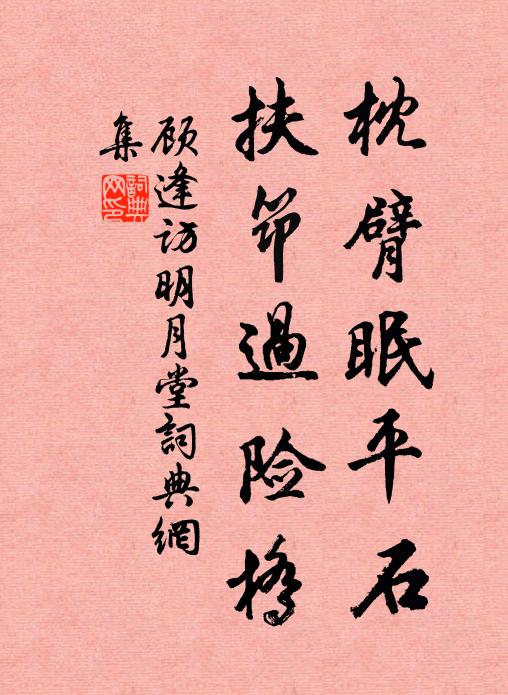 枕臂眠平石
扶筇過险橋
顾逢访明月堂詞典網
集
詞典
网印